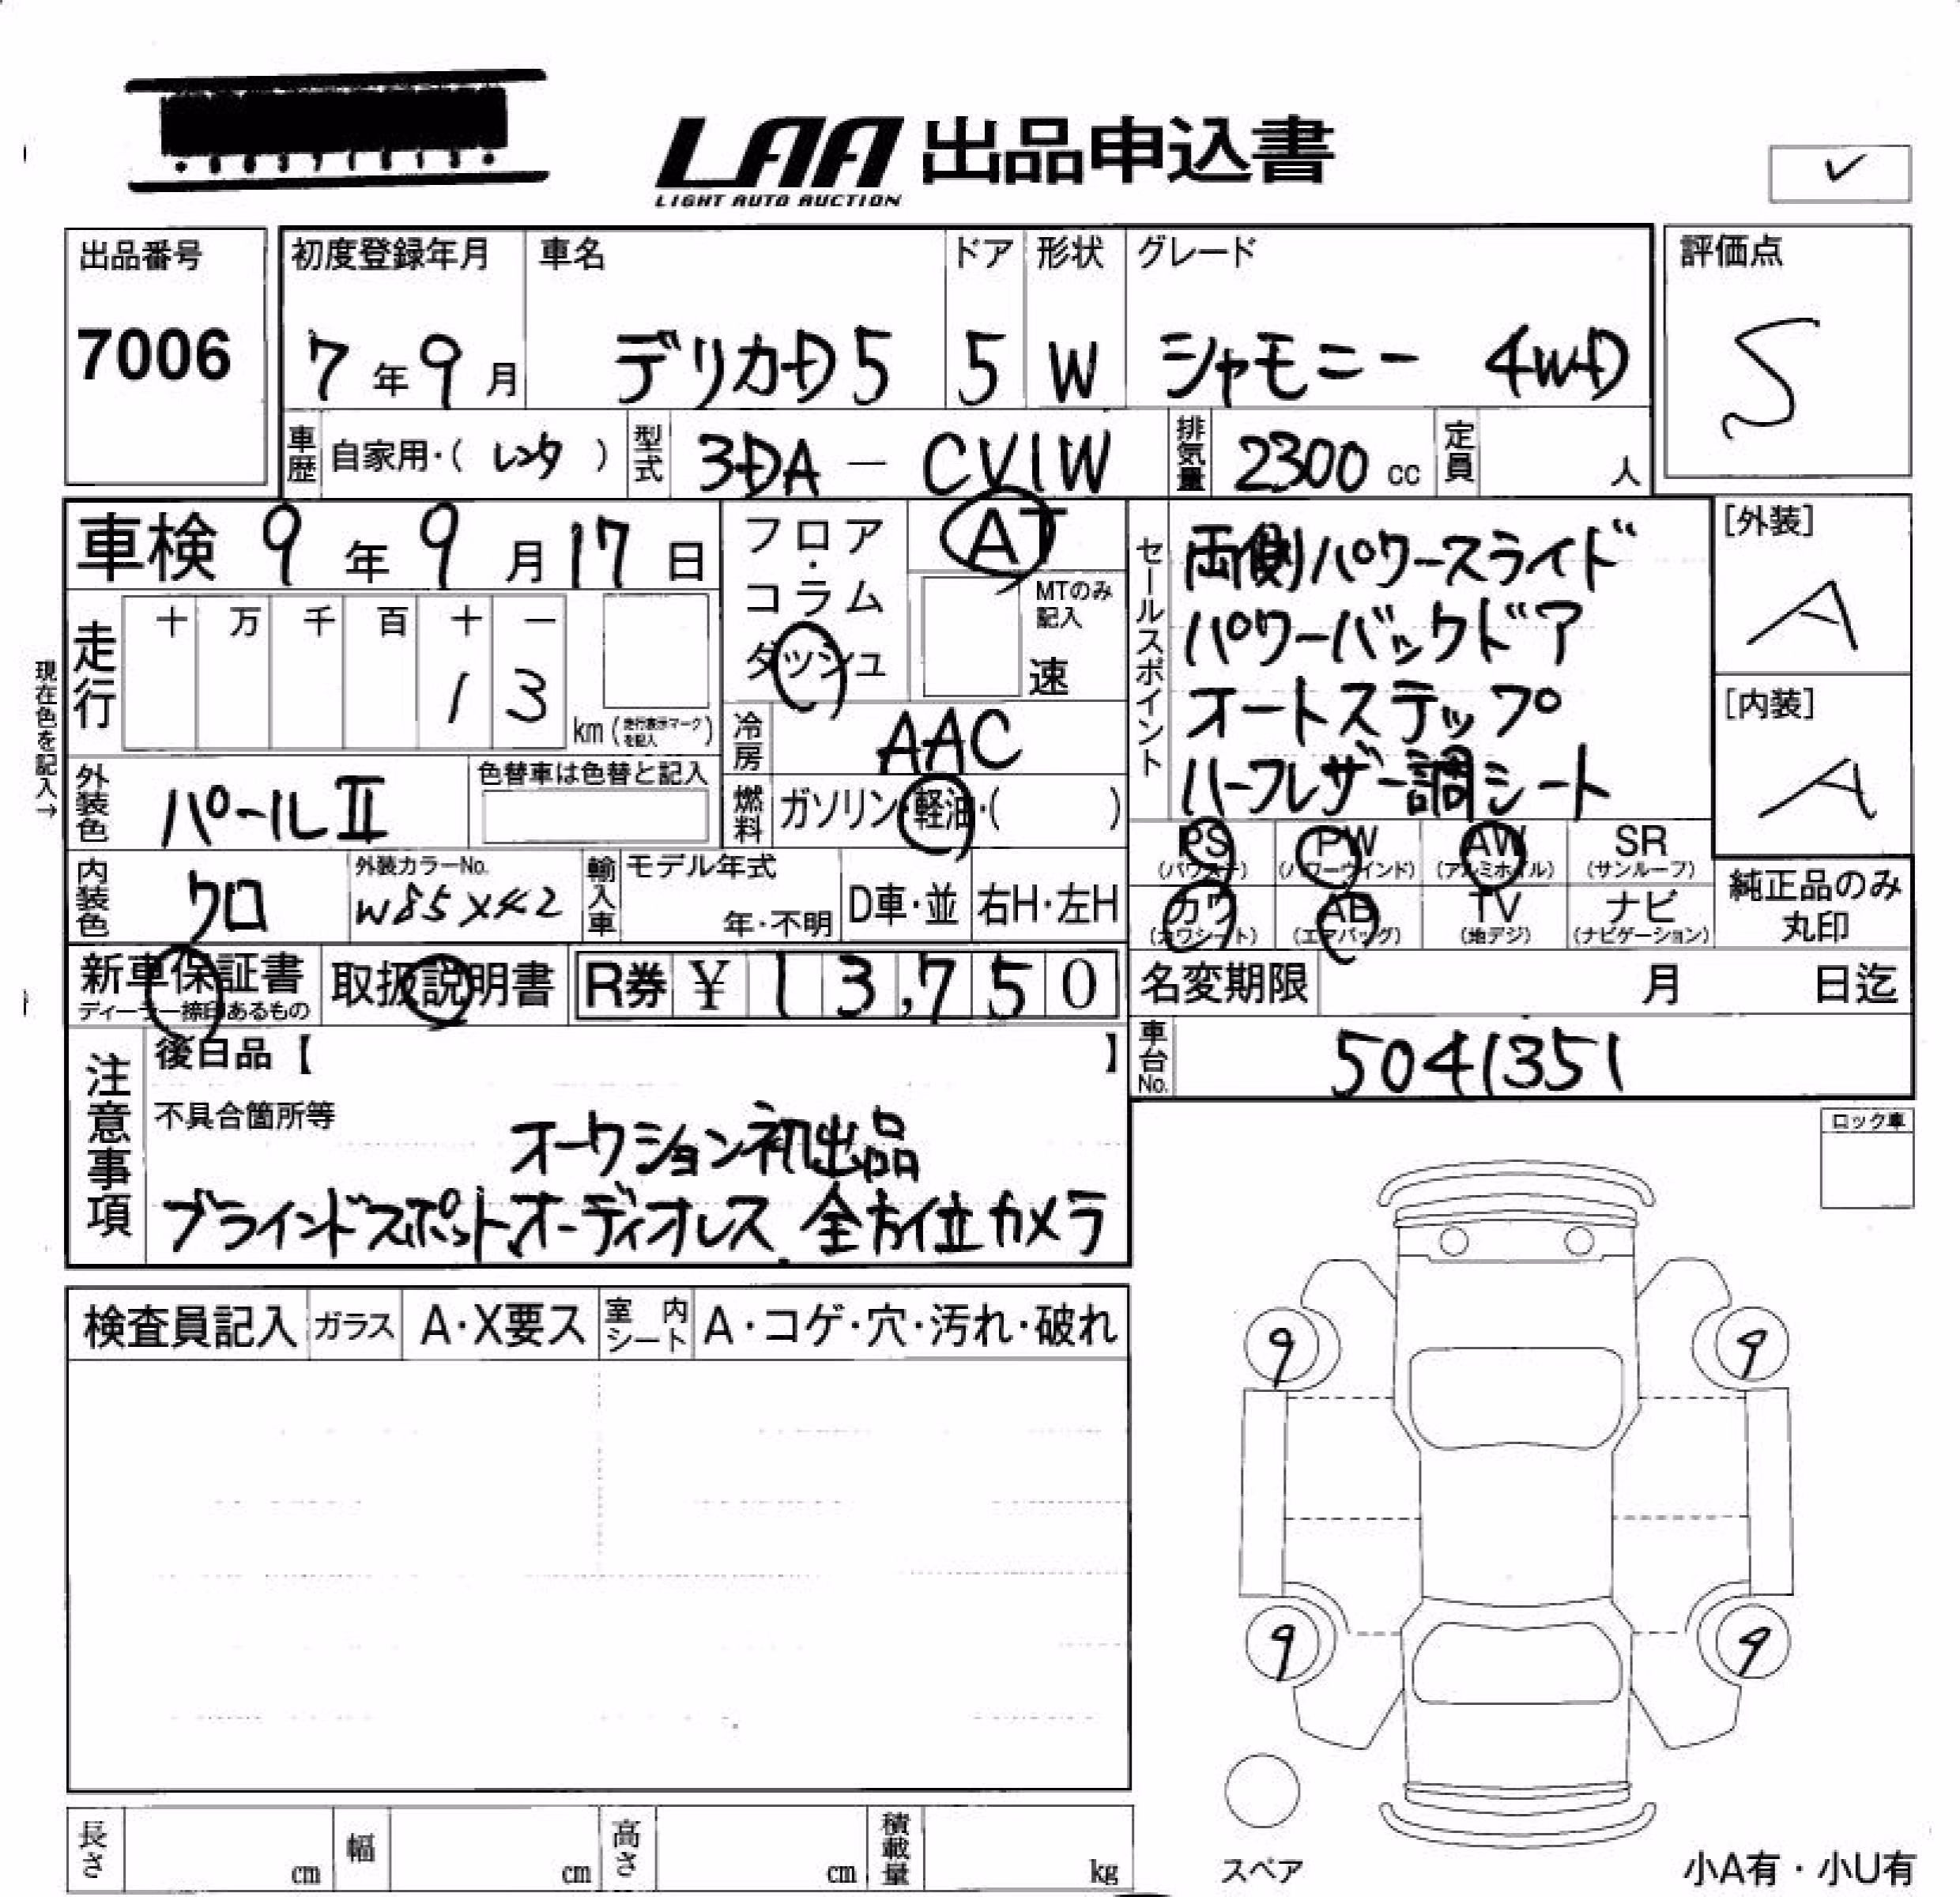 LAA 出品申込書
LIGHT AUTO AUCTION
出品番号
7006
初度登録年月 車名 ドア 形状 グレード
7年9月 デリカD5 5 W シャモニー 4WD
評価点
S
車歴 自家用・(レンタ) 型式 3DA-CV1W 排気量 2300cc 定員 人
車検 9年9月17日
フロア・コラム ダッシュ
AT
MTのみ記入
速
セールスポイント
両側パワースライド
パワーバックドア
オートステップ
ハーフレザー調シート
[外装]
A
[内装]
A
現在色を記入→
走行 十 万 千 百 十 一
1 3 km (走行表示マークを記入)
冷房 AAC
外装色 パールⅡ 色替車は色替と記入
燃料 ガソリン・軽油・( )
PS (パワステ) PW (パワーウインド) AW (アルミホイル) SR (サンルーフ)
カワ (カワシート) AB (エアバッグ) TV (地デジ) ナビ (ナビゲーション)
純正品のみ丸印
内装色 クロ 外装カラーNo. W85X42 輸入車 モデル年式 年・不明 D車・並 右H・左H
新車保証書 ディーラー捺印あるもの 取扱説明書 R券 ¥ 13,750
名変期限 月 日迄
車台No. 5041351
注意事項
後日品【 】
不具合箇所等
オークション初出品
ブラインドスポット、オーディオレス、全方位カメラ
ロック車
検査員記入 ガラス A・X要ス 室内シート A・コゲ・穴・汚れ・破れ
9 9
9 9
スペア
長さ cm 幅 cm 高さ cm 積載量 kg
小A有・小U有